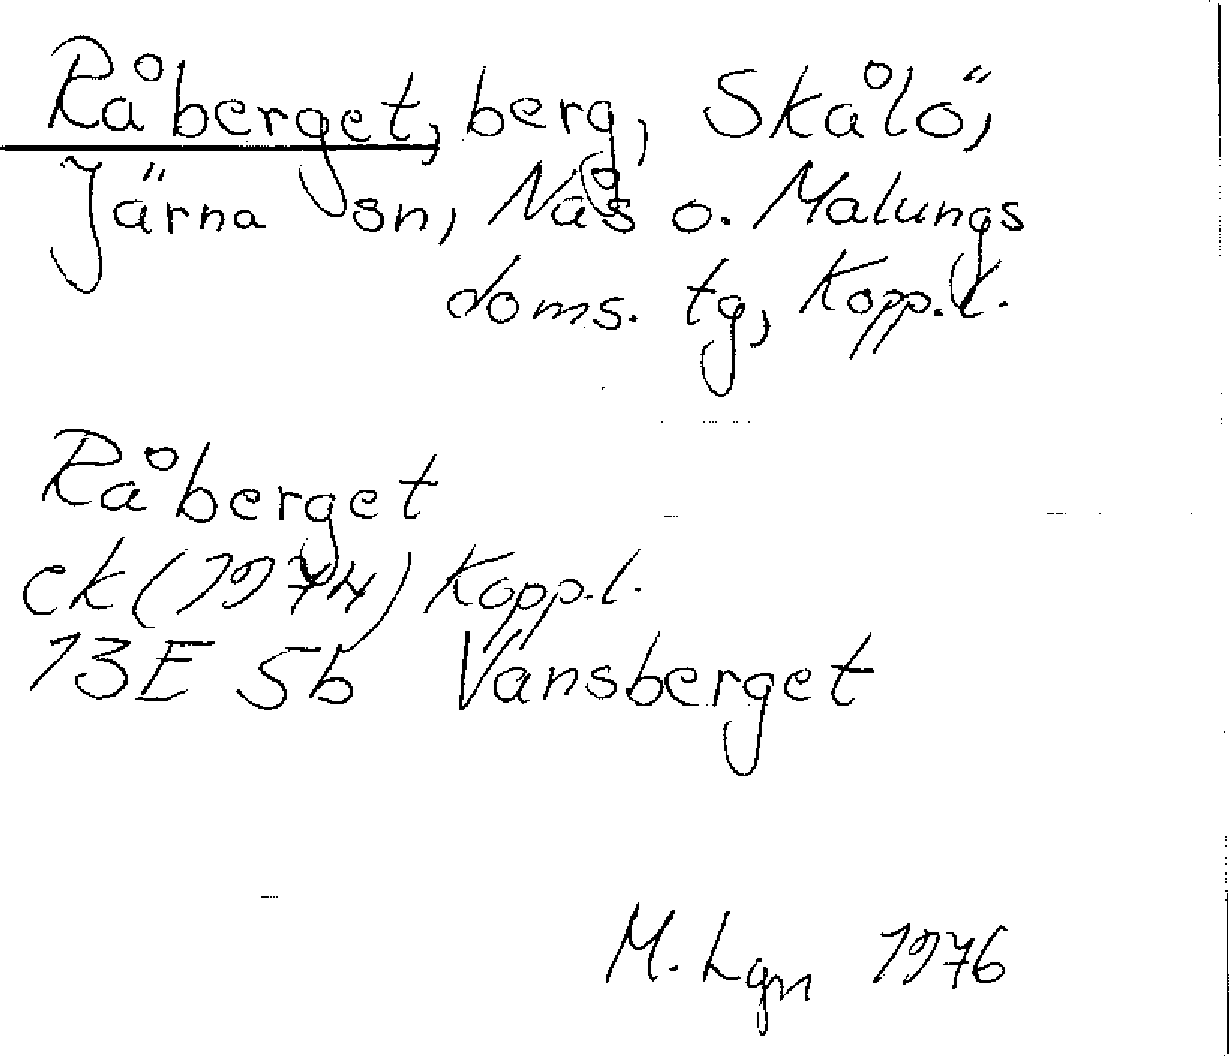 Råberget, berg, Skålö,
Järna sn, Nås o. Malungs
doms. tg, Kopp. l.
Råberget
ek (1974) Kopp. l.
13E 5b Vansberget
M. Lgn 1976